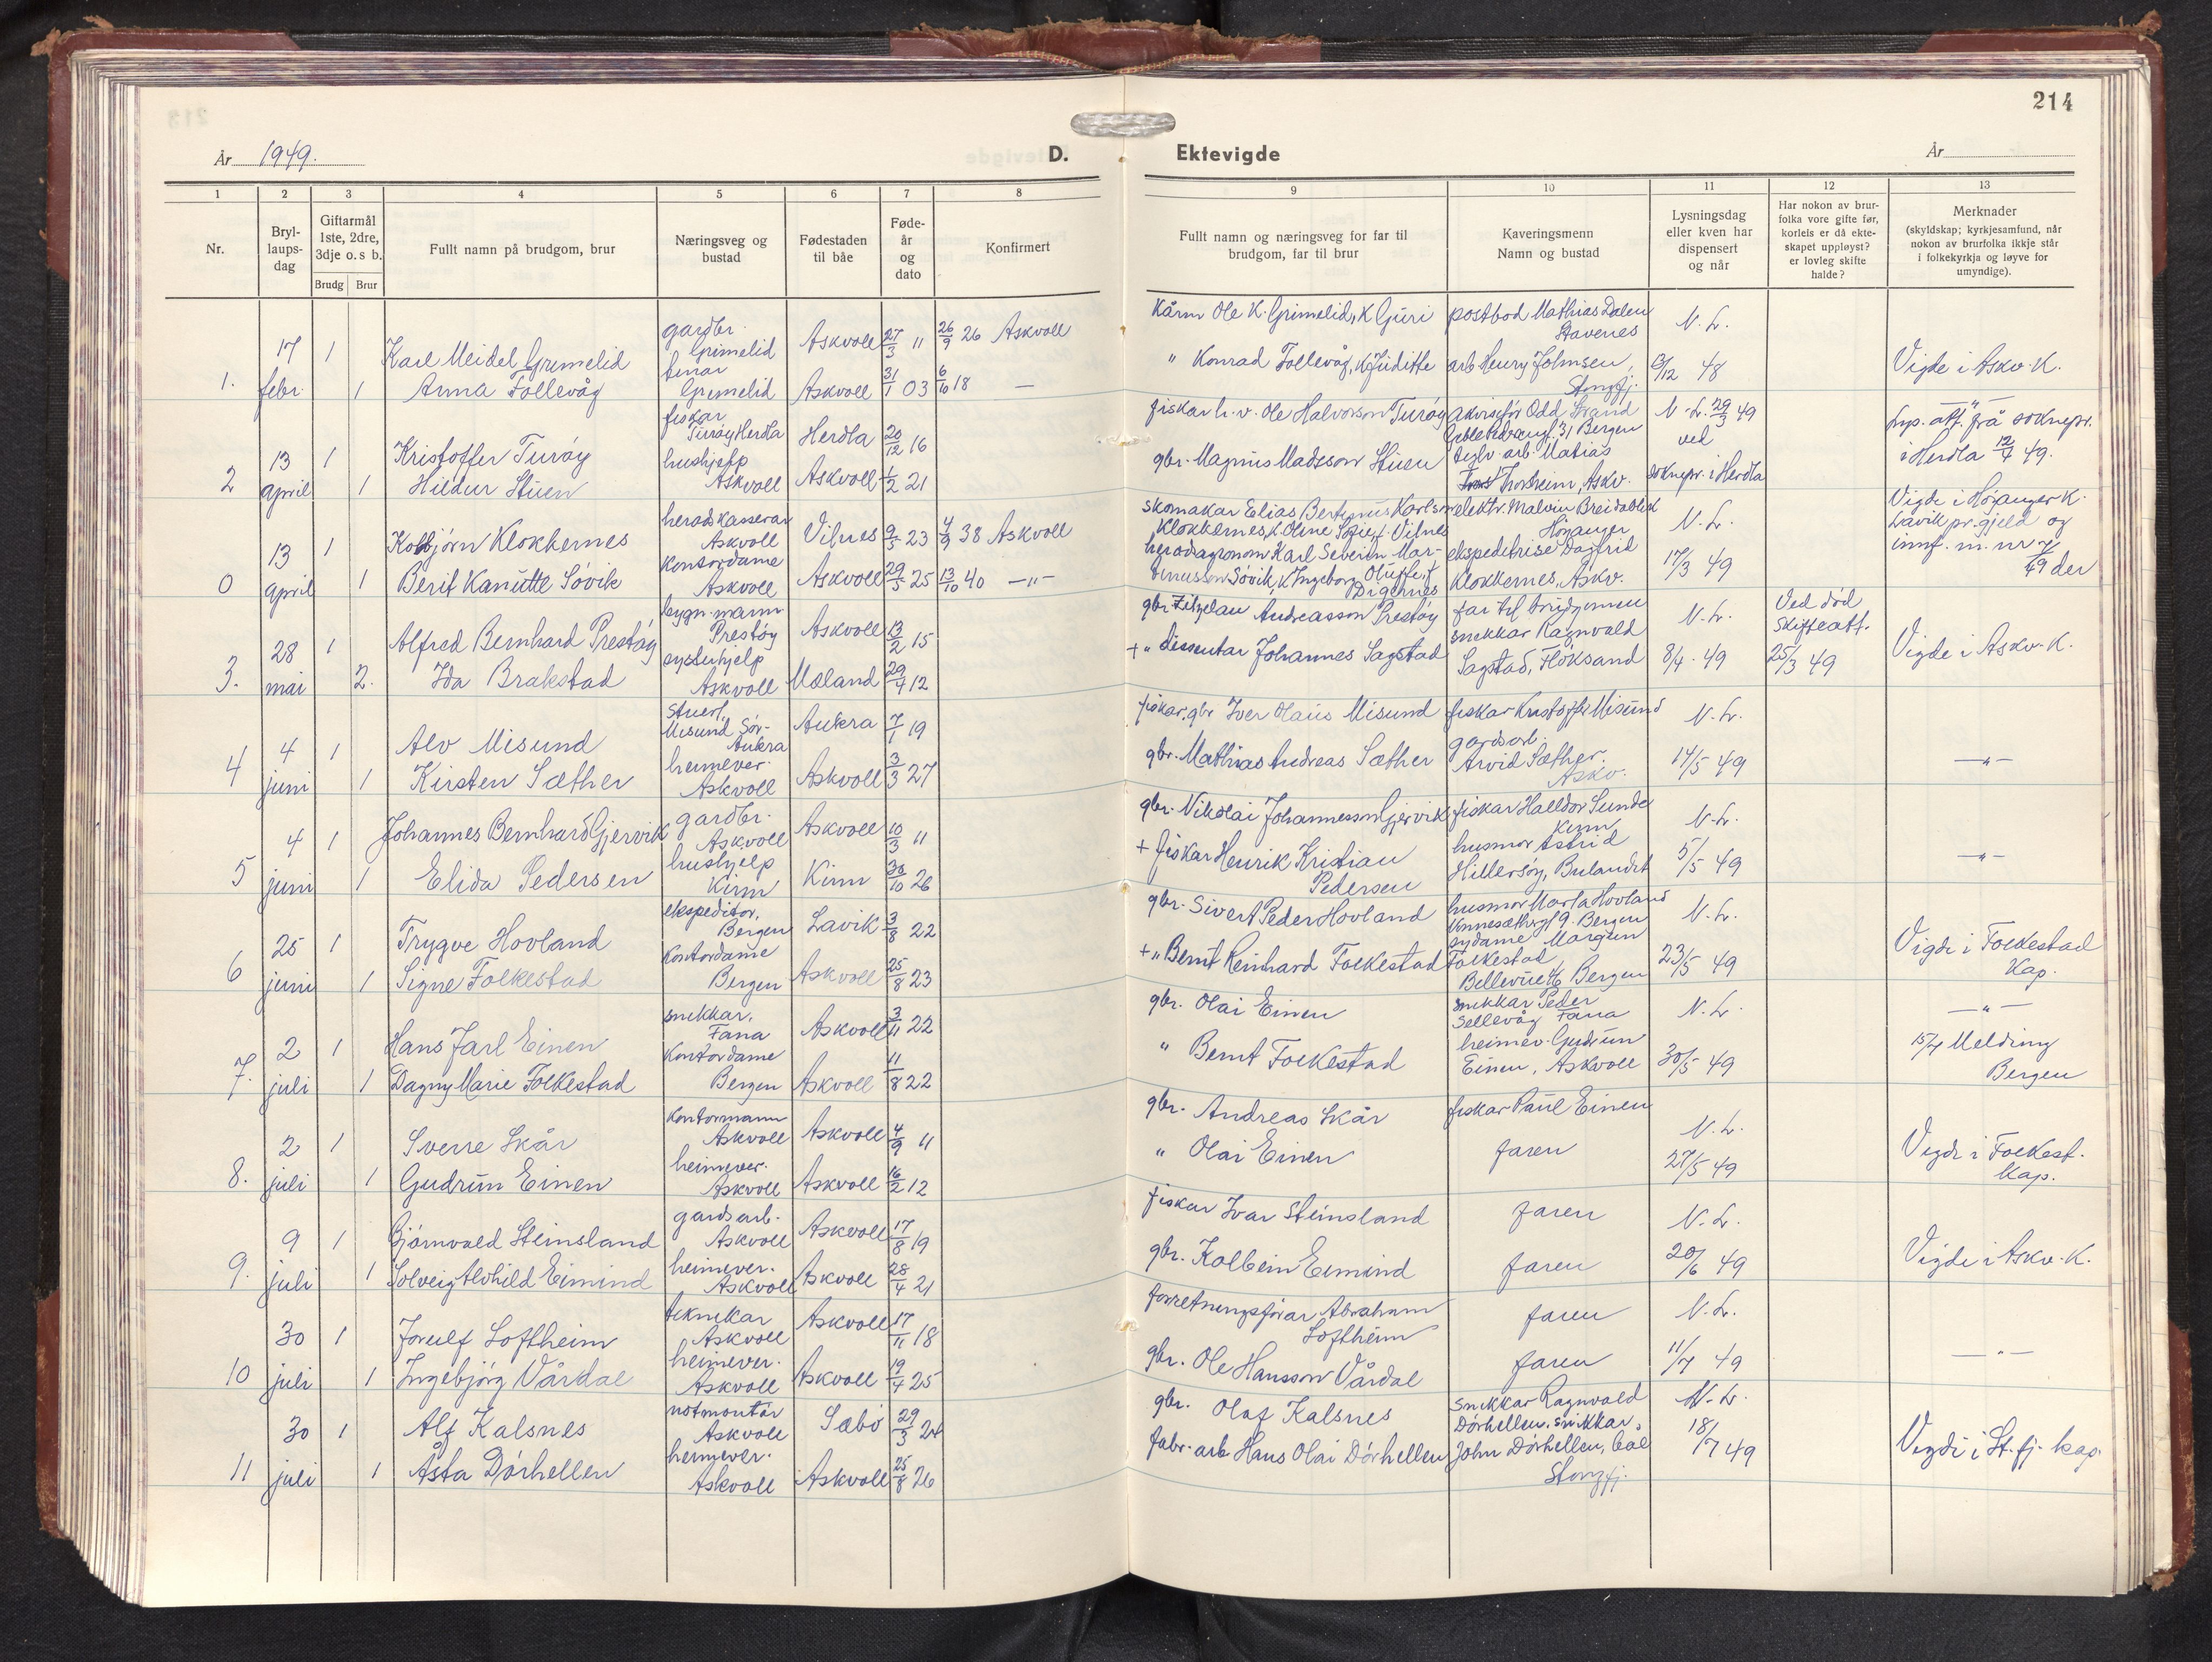 214
År 1949.
D.
Ektevigde
År
1 2 3 4 5 6 7 8
9 10 11 12 13
Nr.
Bryl-
laups-
dag
Giftarmål
1ste, 2dre,
3dje o. s b.
Brudg Brur
Fullt namn på brudgom, brur
Næringsveg og
bustad
Fødestaden
til båe
Føde-
år
og
dato
Konfirmert
Fullt namn og næringsveg for far til
brudgom, far til brur
Kaveringsmenn
Namn og bustad
Lysningsdag
eller kven har
dispensert
og når
Har nokon av brur-
folka vore gifte før,
korleis er då ekte-
skapet uppløyst?
er lovleg skifte
halde?
Merknader
(skyldskap; kyrkjesamfund, når
nokon av brurfolka ikkje står
i folkekyrkja og løyve for
umyndige).
1. 17 febr.
1 Karl Meidel Grimelid gardbr. Grimelid Askvoll 27/3 11 26/9 26 Askvoll
1 Anna Follevåg Grimelid Askvoll 31/1 03 6/10 18 —
Kårm Ole K. Grimelid, K Guri postbod Mathias Dalen Stavenes N. L.
" Konrad Follevåg, K Juditte arb Henry Johnsen, Stongfj. /12 48 Vigde i Askv. K.
2 13 april
1 Kristoffer Turøy fiskar Turøy Herdla Herdla 20/12 16
1 Hildur Stuen hushjelp Askvoll Askvoll 1/2 21
fiskar h. v. Ole Halvorson Turøy Odd Strand 31 Bergen N. L. 29/3 49 ved
gbr. Magnus Madsson Stuen arb. Matias Trorheim, Askv. soknepr. i Herdla
att. frå soknepr. i Herdla 12/4 49.
0 13 april
1 Kolbjørn Klokkernes heradskasserar Askvoll Vilnes 9/5 23 4/9 38 Askvoll
1 Berit Kanutte Søvik Kontordame Askvoll Askvoll 29/5 25 13/10 40 —"—
skomakar Elias Bertinus Karlson Klokkernes, K Oline Sofie, f. Vilnes elektr. Malvin Breidablik Høyanger N. L.
heradagronom Karl Severin Martinusson Søvik, K Ingeborg Oluffe, f. Digernes ekspeditrise Dagfrid Klokkernes, Askv. 17/3 49
Vigde i Høyanger K.
Lavik pr.gjeld og
innf. m. nr 7/49 der
3. 28 mai
1 Alfred Bernhard Prestøy bygn. mann Prestøy Askvoll 13/2 15
2. Ida Brakstad systerhjelp Askvoll Mæland 29/4 12
gbr. Andreasson Prestøy far til brudgomen N. L. Ved død Skifteatt. 25/3 49
+ " dissentar Johannes Sagstad snikkar Ragnvald Sagstad, Fløksand 8/4 - 49 Vigde i Askv. K.
4 4 juni
1 Alv Misund Stuert, Misund Sør-Aukra Aukra 7/1 19
1 Kirsten Sæther heimever. Askvoll Askvoll 3/3 27
fiskar, gbr Iver Olaus Misund fiskar Kristoffer Misund N. L.
gbr. Mathias Andreas Sæther gardsarb. Arvid Sæther. Askv. 14/5 49 —"—
5 4 juni
1 Johannes Bernhard Gjervik gardbr. Askvoll Askvoll 10/3 11
1 Elida Pedersen hushjelp Kinn Kinn 30/10 26
gbr. Nikolai Johannesson Gjervik fiskar Halldor Sunde Kinn N. L.
+ fiskar Henrik Kristian Pedersen husmor Astrid Hillersøy, Bulandet 5/5 49 —"—
6 25 juni
1 Trygve Hovland ekspeditør, Bergen Lavik 3/8 22
1 Signe Folkestad Kontordame Bergen Askvoll 25/8 23
gbr. Sivert Peder Hovland husmor Marta Hovland 9. Bergen N. L.
+ " Bernt Reinhard Folkestad sydame Margun Folkestad, Bellevue Bergen 23/5 49 Vigde i Folkestad Kap.
7. 2 juli
1 Hans Jarl Einen snikkar, Fana Askvoll 3/11 22
1 Dagny Marie Folkestad Kontordame Bergen Askvoll 11/8 22
gbr. Olai Einen snikkar Peder Sellevåg Fana N. L. —"—
" Bernt Folkestad heimev. Gudrun Einen, Askvoll 30/5 49 15/7 Melding Bergen
8. 2 juli
1 Sverre Skår Kontormann Askvoll Askvoll 4/9 11
1 Gudrun Einen heimever. Askvoll Askvoll 16/2 12
gbr. Andreas Skår fiskar Paul Einen N. L.
" Olai Einen faren 27/5 49 Vigde i Folkest. Kap.
9. 9 juli
1 Bjørnvald Steinsland gardsarb. Askvoll Askvoll 17/8 19
1 Solveig Alvhild Eimind heimever. Askvoll Askvoll 28/4 21
fiskar Ivar Steinsland faren N. L.
gbr. Kolbein Eimind faren 20/6 49 Vigde i Askv. K.
10 30 juli
1 Jorulf Loftheim teknikar Askvoll Askvoll 17/11 18
1 Ingebjørg Vårdal heimever. Askvoll Askvoll 19/4 25
forretningsførar Abraham Loftheim faren N. L.
gbr. Ole Hansson Vårdal faren 11/7 49 —"—
11 30 juli
1 Alf Kalsnes notmontør Askvoll Sæbø 29/3 24
1 Åsta Dørhellen heimever. Askvoll Askvoll 25/8 26
gbr. Olaf Kalsnes snikkar Ragnvald Dørhellen, snikkar N. L.
fabr. arb Hans Olai Dørhellen John Dørhellen, Stongfj. 18/7 49 Vigde i St.fj. kap.